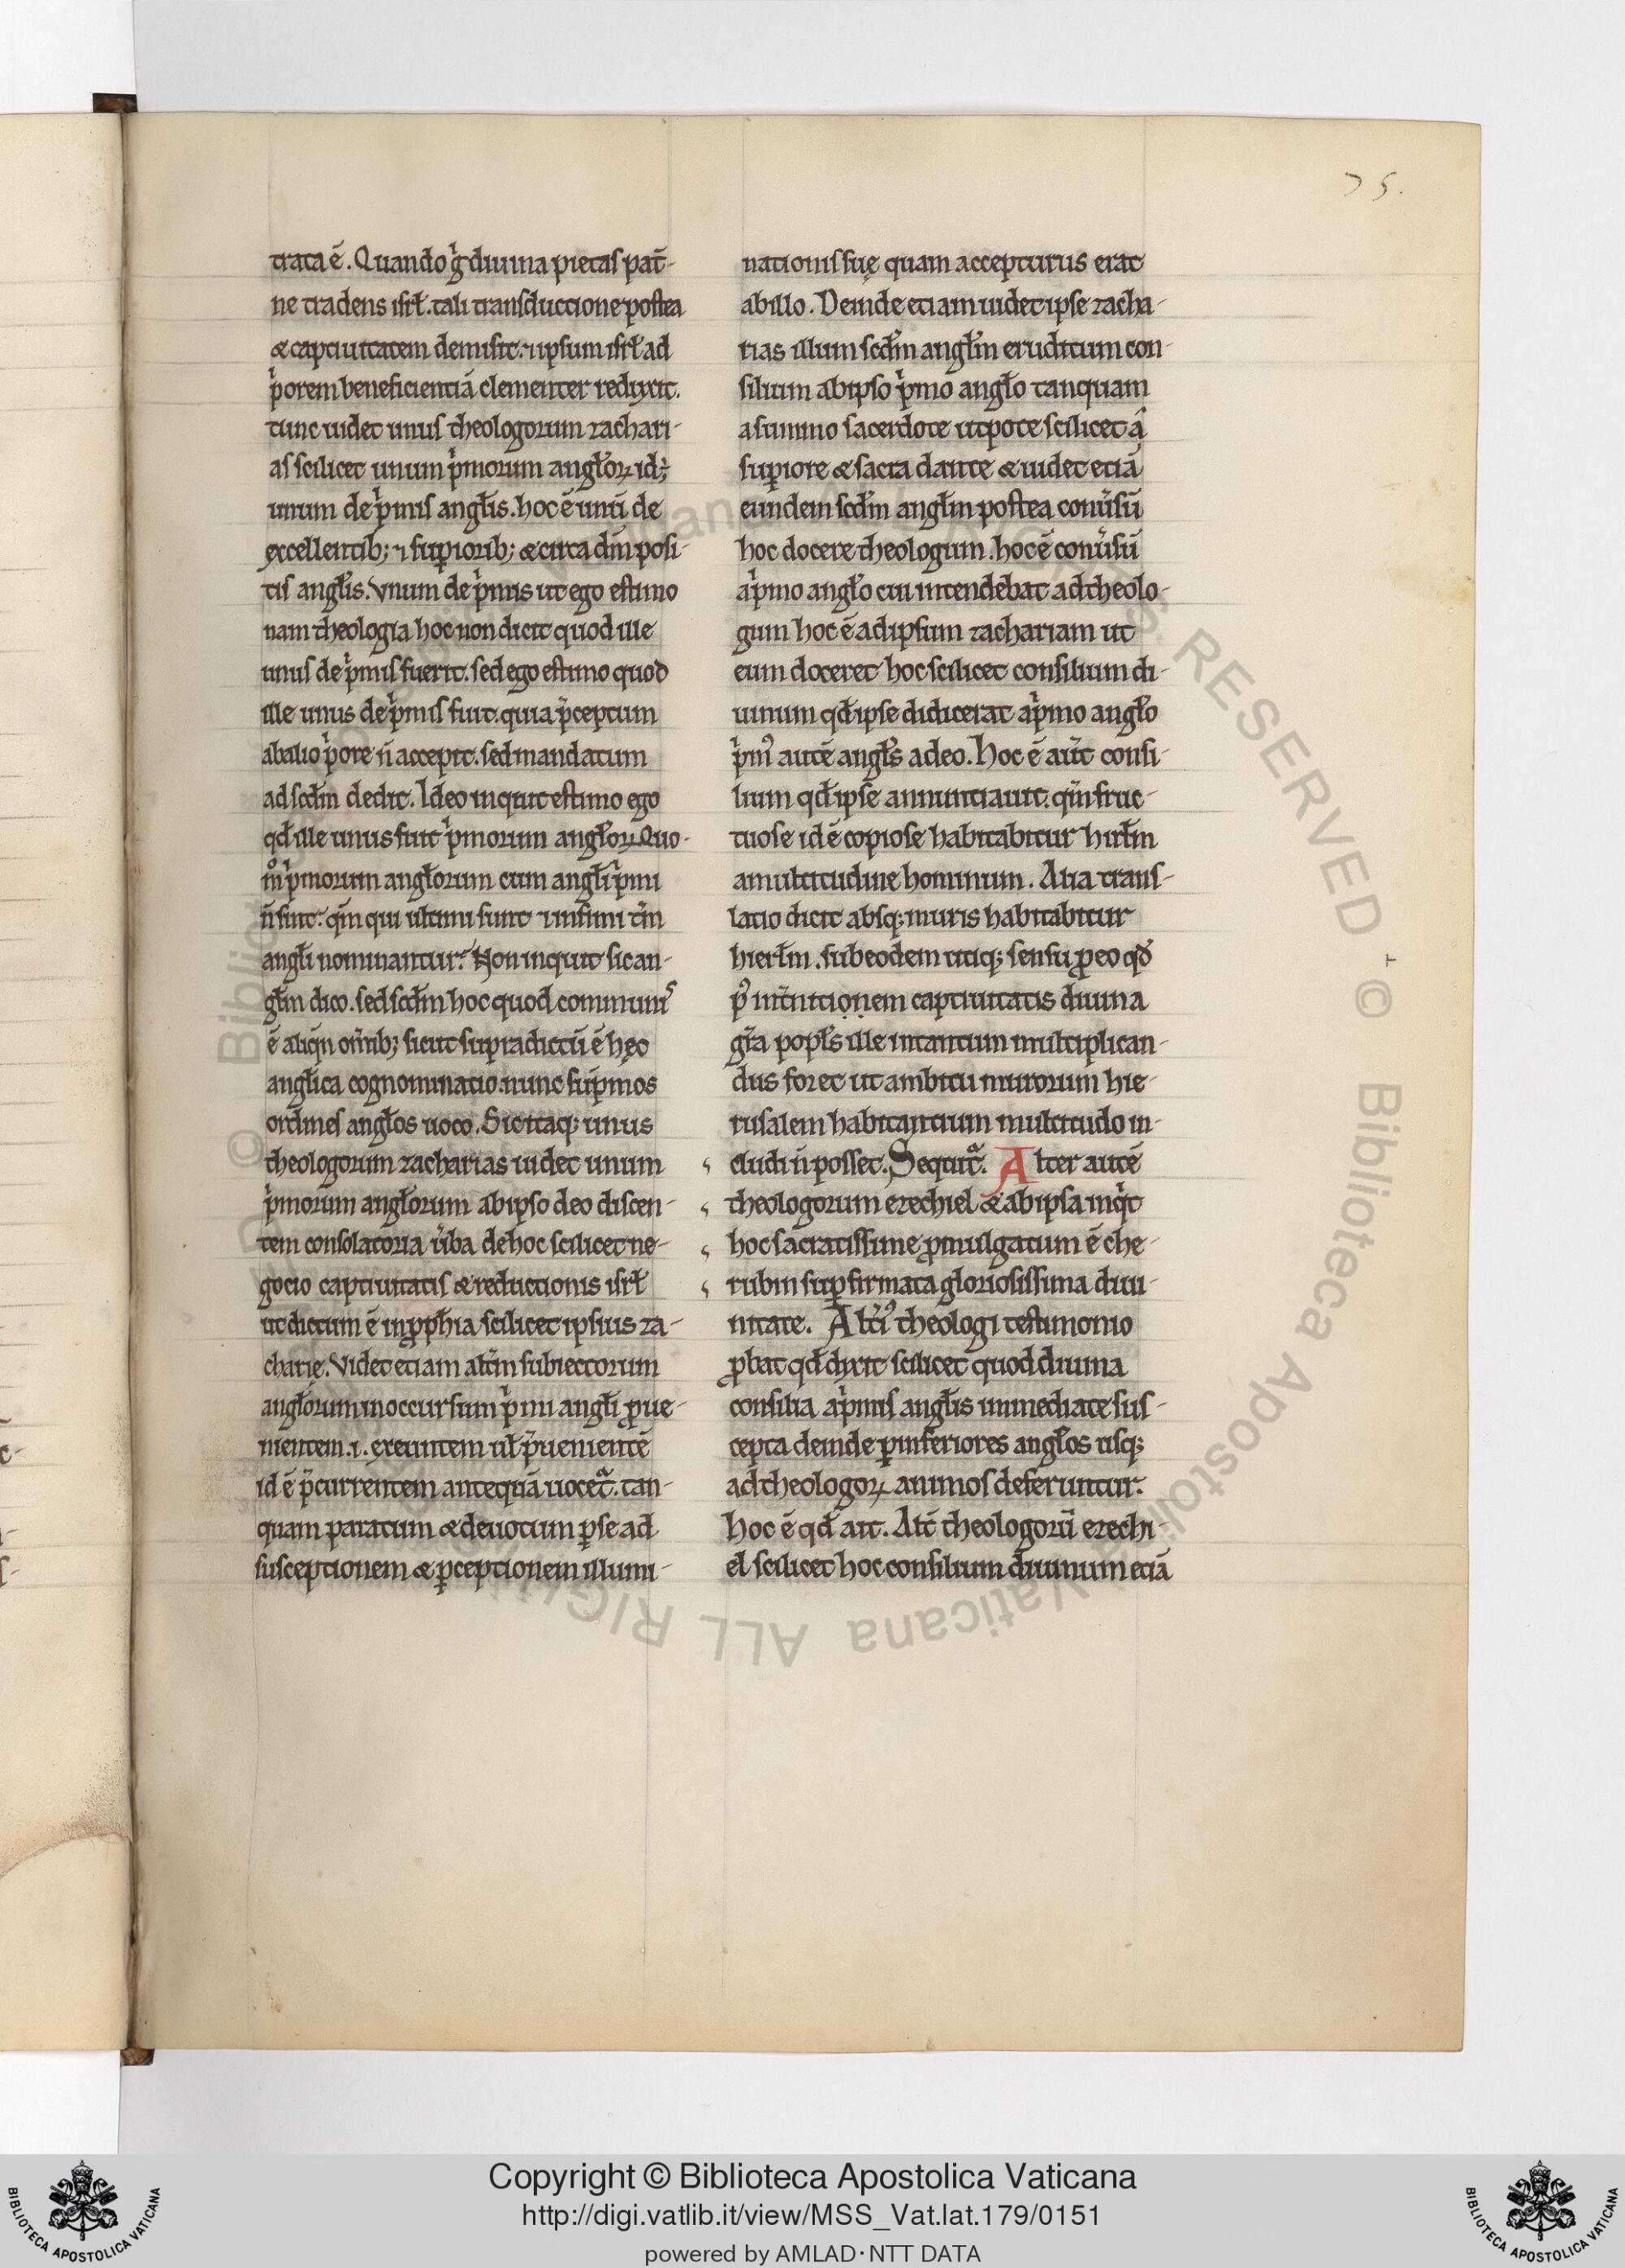 75.
trata ē. Quando gͥ diuina pietas pat̄-
ne tradens isrł. tali transductione postea
& captiuitatem demisit. ⁊ ipsum isrł ad
pͥorem beneficientiā clementer reduxit.
tunc uidet unus theologorum zachari-
as scilicet unum pͥmorum angłoꝝ id ÷
unum de pͥmis angłis. hoc ē unū de
excellentib; ⁊ suꝑiorib; & circa dm̄ posi-
tis angłis. Vnum de pͥmis ut ego estimo
nam theologia hoc non dicit quod ille
unus de pͥmis fuerit. sed ego estimo quod
ille unus de pͥmis fuit. quia p̄ceptum
ab alio pͥore n̄ accepit. sed mandatum
ad scd̄m dedit. Ideo inquit estimo ego
qd̄ ille unus fuit pͥmorum angłoꝝ Quo-
m̊ pͥmorum angłorum cum angłi pͥmi
n̄ sint. qm̄ qui ultimi sunt ⁊ infimi tm̄
angłi nominantur? Non inquit sic an-
głm dico. sed scd̄m hoc quod communiˢ
ē aliqn̄ om̄ib; sicut supradictū ē hęc
angłica cognominatio. nunc sup̄mos
ordines angłos uoco. Sic itaq; unus
theologorum zacharias uidet unum
pͥmorum angłorum ab ipso deo discen-
tem consolatoria ūba de hoc scilicet ne-
gocio captiuitatis & reductionis isrł
ut dictum ē in ꝓph̄ia scilicet ipsius za-
charię. Videt etiam alt̄m subiectorum
angłorum in occursum pͥmi angłi ꝓue-
nientem .i. exeuntem uł p̄uenientē
id ē p̄currentem antequā uocet᷑. tan-
quam paratum & deuotum ꝑ se ad
susceptionem & ꝑceptionem illumi-
nationis suę quam accepturus erat
ab illo. Deinde etiam uidet ipse zacha-
rias illum scd̄m angłm eruditum con-
silium ab ipso pͥmo angło tanquam
a summo sacerdote utpote scilicet a
suꝑiore & sacra dante & uidet etiā
eundem scd̄m angłm postea conūsū
hoc docere theologum. hoc ē conūsū
a pͥmo angło cui intendebat ad theolo-
gum hoc ē ad ipsum zachariam ut
eum doceret hoc scilicet consilium di-
uinum qd̄ ipse didicerat a pͥmo angło
pͥmꝰ autē angłs a deo. Hoc ē aut̄ consi-
lium qd̄ ipse annuntiauit. qm̄ fruc-
tuose id ē copiose habitabitur hirłm
a multitudine hominum. Alia trans-
latio dicit absq; muris habitabitur
hierłm. sub eodem utiq; sensu ꝓ eo qd̄
pꝰ int̄nitionem captiuitatis diuina
gr̄a popłs ille in tantum multiplican-
dus foret ut ambitu murorum hie-
rusalem habitantium multitudo in-
cludi n̄ posset. Sequit᷑. Alter autē
theologorum ezechiel & ab ipsa inqͥt
hoc sacratissime ꝓmulgatum ē che-
rubin suꝑ firmata gloriosissima diui-
nitate. Alt̄iꝰ theologi testimonio
ꝓbat qd̄ dixit scilicet quod diuina
consilia a pͥmis angłis immediate sus-
cepta deinde ꝑ inferiores angłos usq;
ad theologoꝝ animos deferuntur.
Hoc ē qd̄ ait. Alt̄ theologorū ezechi-
el scilicet hoc consilium diuinum etiā
Copyright © Biblioteca Apostolica Vaticana
http://digi.vatlib.it/view/MSS_Vat.lat.179/0151
powered by AMLAD·NTT DATA